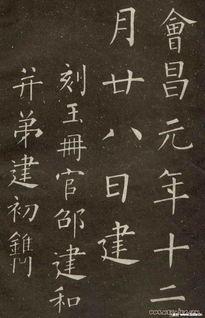 會昌元年十二
月廿八日建
刻玉冊官邵建和
并弟建初鐫